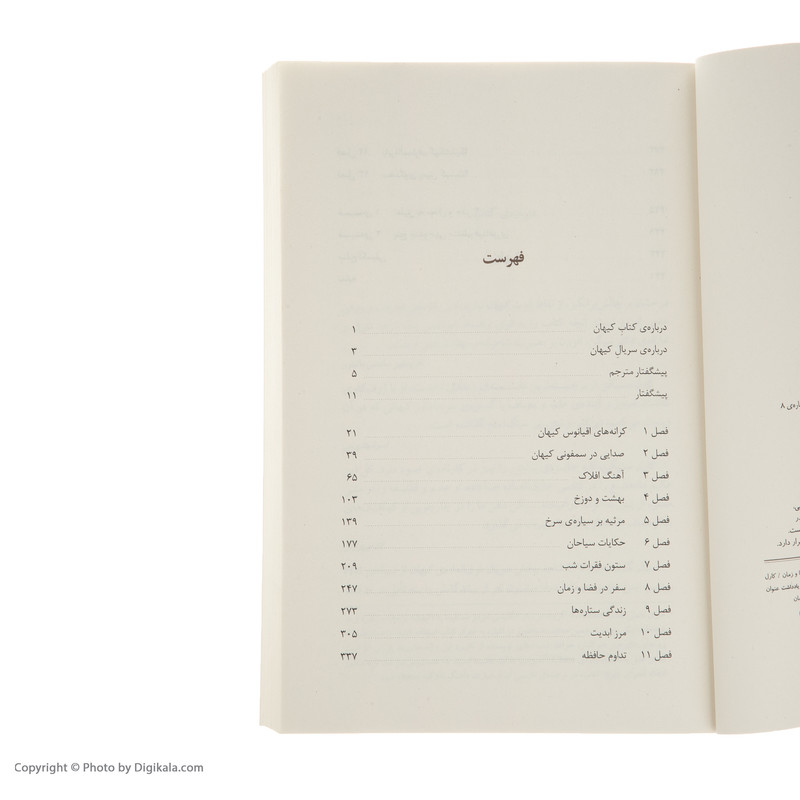 فهرست
درباره‌ی کتاب کیهان ۱
درباره‌ی سریال کیهان ۳
پیشگفتار مترجم ۵
پیشگفتار ۱۱
فصل ۱ کرانه‌های اقیانوس کیهان ۲۱
فصل ۲ صدایی در سمفونی کیهان ۳۹
فصل ۳ آهنگ افلاک ۶۵
فصل ۴ بهشت و دوزخ ۱۰۳
فصل ۵ مرثیه بر سیاره‌ی سرخ ۱۳۹
فصل ۶ حکایات سیاحان ۱۷۷
فصل ۷ ستون فقرات شب ۲۰۹
فصل ۸ سفر در فضا و زمان ۲۴۷
فصل ۹ زندگی ستاره‌ها ۲۷۳
فصل ۱۰ مرز ابدیت ۳۰۵
فصل ۱۱ تداوم حافظه ۳۳۷
۸
رار دارد.
و زمان / کارل
یادداشت عنوان
Copyright © Photo by Digikala.com